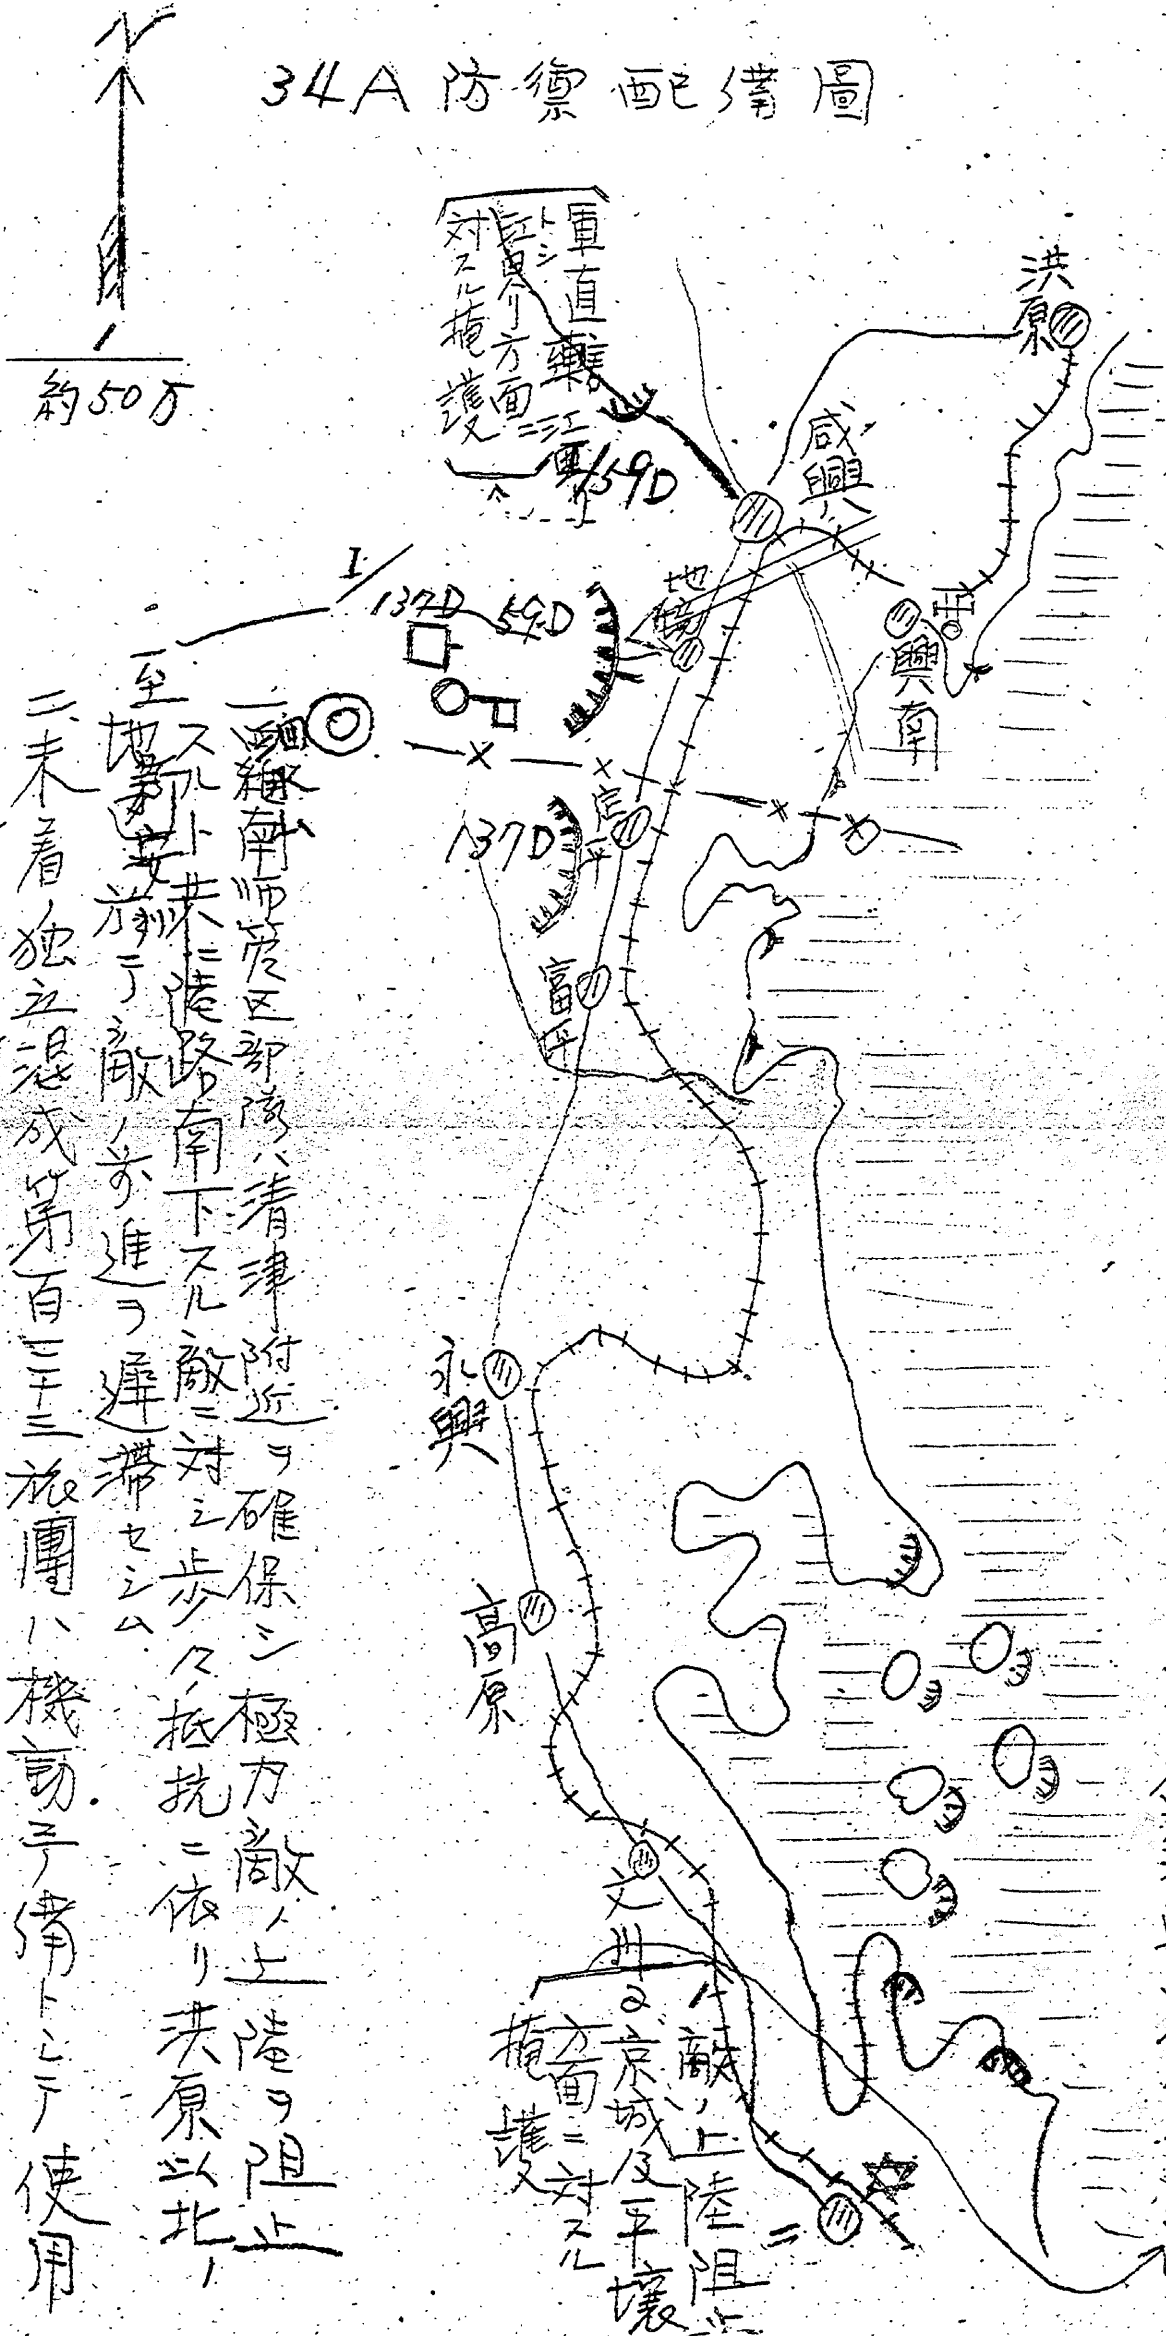 N
34A防禦配備圖
約50万
軍直轄
トシ
江界方面ニ
対スル掩護
江界ニ至ル
洪原
咸興
159D
地境
興南
I/137D 59D
137D
定平
富坪
永興
高原
文川
1敵ノ上陸阻止
2京城及平壤
方面ニ対スル
掩護
南師管区部隊ハ清津附近ヲ確保シ極力敵ノ上陸ヲ阻止
スルト共ニ陸路南下スル敵ニ対シ歩々ノ抵抗ニ依リ洪原以北ノ
地 於テ敵ノ前進ヲ遲滯セシム
二、未着ノ独立混成第百三十三旅團ハ機動予備トシテ使用
至